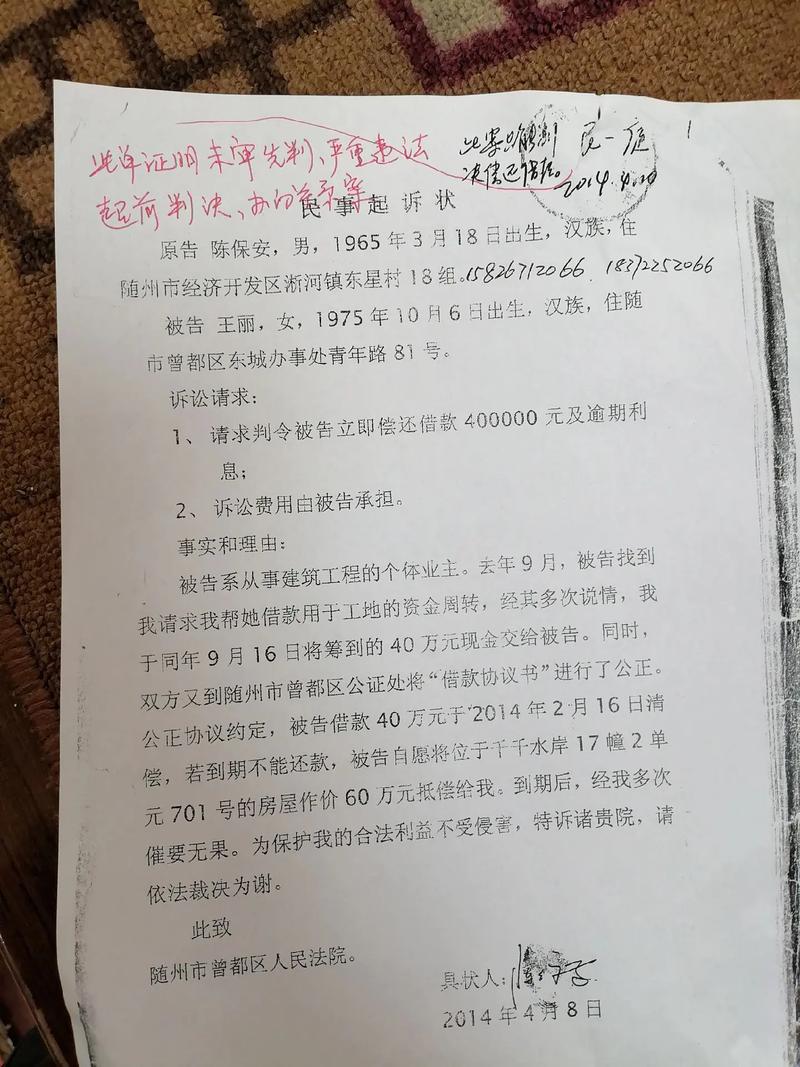 此单证明未审先判、严重违法
起前判决、办的
此案只能判
决偿还借症。
民一庭
2014.4.20
1
民事起诉状
原告 陈保安，男，1965年3月18日出生，汉族，住
随州市经济开发区淅河镇东星村18组。15826712066 18372252066
被告 王丽，女，1975年10月6日出生，汉族，住随
市曾都区东城办事处青年路81号。
诉讼请求：
1、请求判令被告立即偿还借款400000元及逾期利
息；
2、诉讼费用由被告承担。
事实和理由：
被告系从事建筑工程的个体业主。去年9月，被告找到
我请求我帮她借款用于工地的资金周转，经其多次说情，我
于同年9月16日将筹到的40万元现金交给被告。同时，
双方又到随州市曾都区公证处将“借款协议书”进行了公正。
公正协议约定，被告借款40万元于2014年2月16日清
偿，若到期不能还款，被告自愿将位于千千水岸17幢2单
元701号的房屋作价60万元抵偿给我。到期后，经我多次
催要无果。为保护我的合法利益不受侵害，特诉诸贵院，请
依法裁决为谢。
此致
随州市曾都区人民法院。
具状人：
2014年4月8日